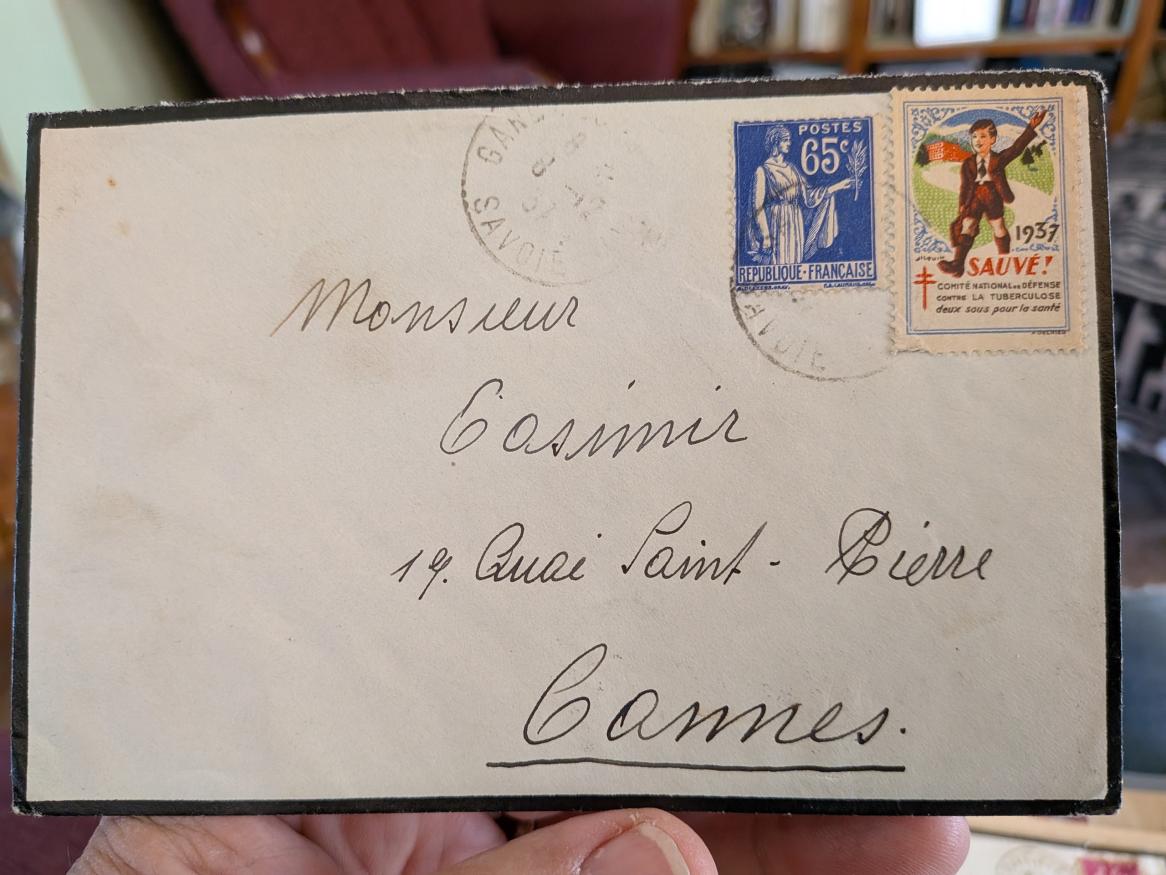 POSTES
65c
REPUBLIQUE-FRANÇAISE
1937
SAUVÉ!
COMITÉ NATIONAL DE DÉFENSE
CONTRE LA TUBERCULOSE
deux sous pour la santé
SAVOIE
Monsieur
Casimir
19. Quai Saint-Pierre
Cannes.